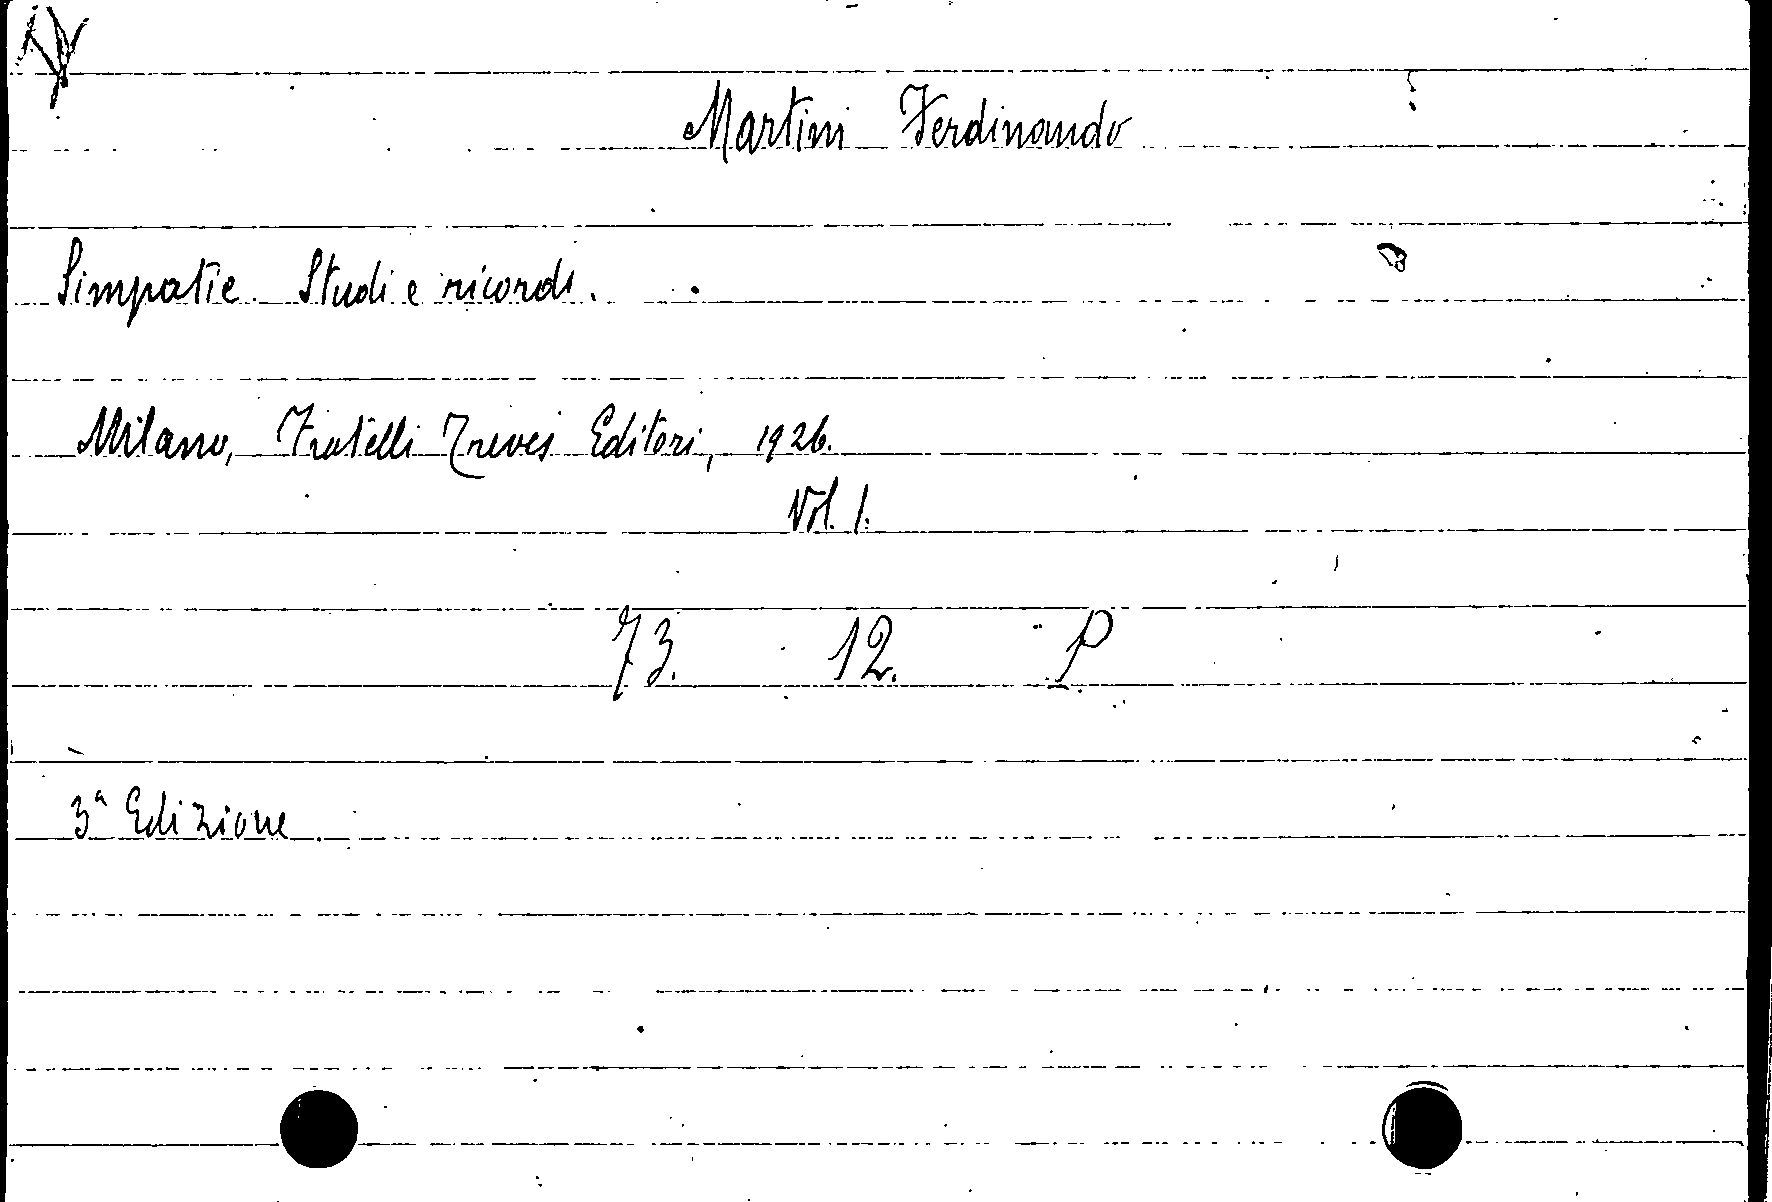 Martini Ferdinando
Simpatie. Studi e ricordi.
Milano, Fratelli Treves Editori, 1926.
Vol. 1.
73. 12. P
3ª Edizione